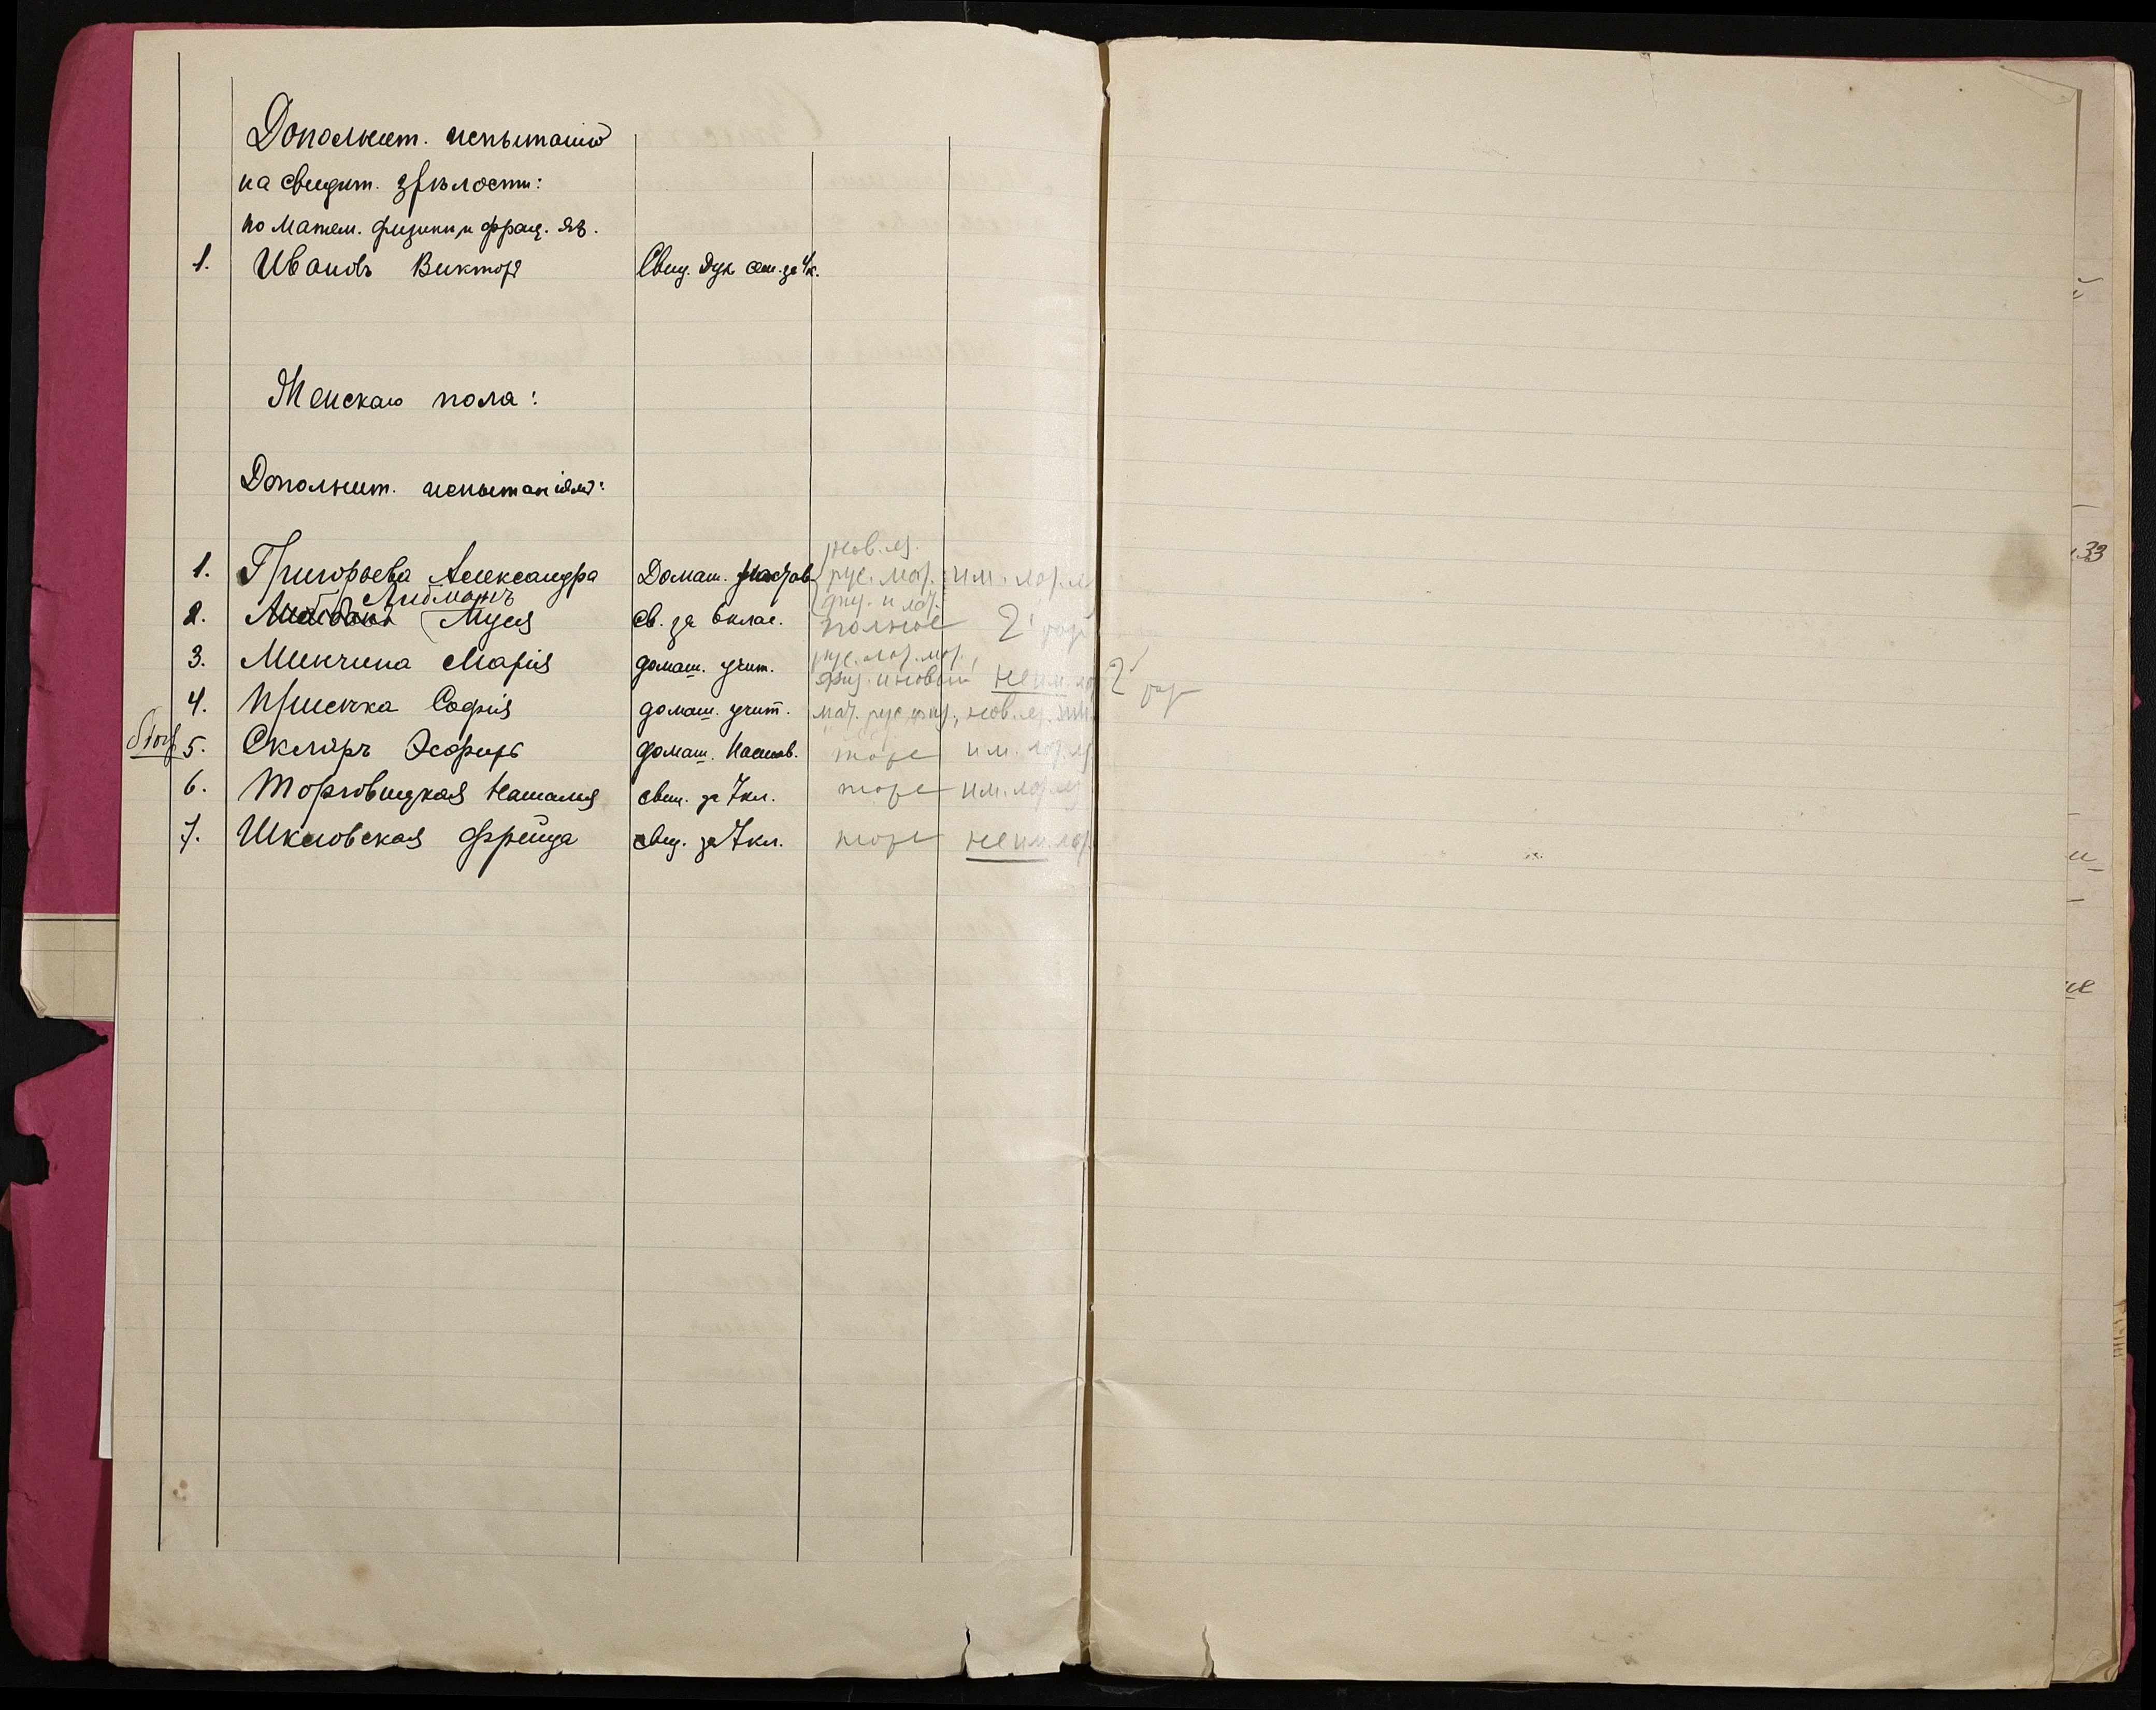 Дополнит. испытанію
на свидѣт. зрѣлости:
по матем. физики и франц. яз.
1. Ивановъ Викторъ Свид. Дух. сем. за 4 к.
Женскаго пола:
Дополнит. испытаніямъ:
нов. яз.
1. Григорьева Александра Домаш. рус. мат. им. лат. яз.
физ. и лат.
Лидманъ
2. Муся св. за 6 клас. полное 2
3. Минчина Марія домаш. учит. рус. лат. мат.
физ. и новый не им. ла 2
4. Присічка Софія домаш. учит. мат. рус. физ., нов. яз.
5. Скляръ Эсфирь домаш. Настав. тоже им. лат. яз
6. Торговицкая Наталія свид. за 7 кл. тоже им. лат. яз
7. Шкловская Фрейда свид. за 7 кл. тоже не им. лат.
33